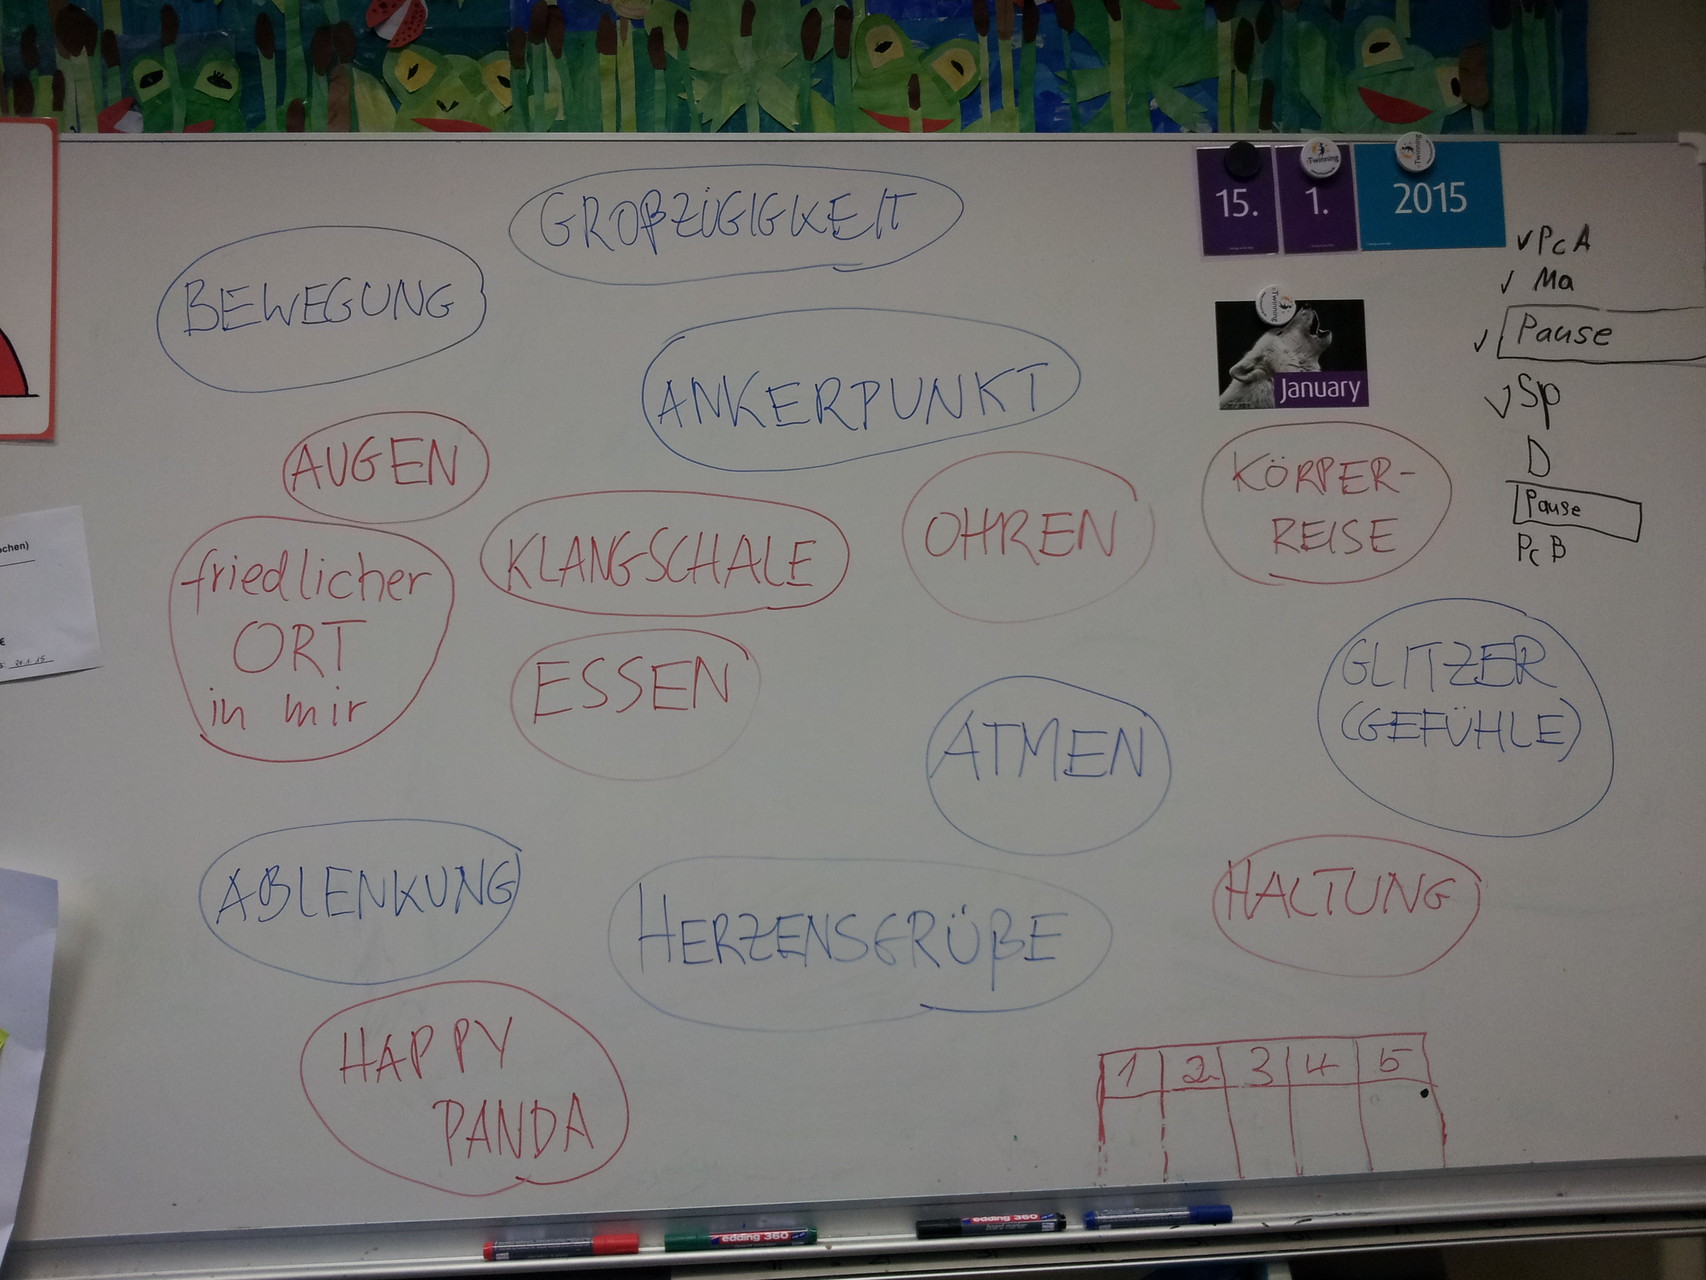 GROßZÜGIGKEIT
BEWEGUNG
ANKERPUNKT
15. 1. 2015
January
✓ Pc A
✓ Ma
✓ Pause
✓ Sp
D
Pause
Pc B
AUGEN
KLANGSCHALE
OHREN
KÖRPER-
REISE
friedlicher
ORT
in mir
ESSEN
ATMEN
GLITZER
(GEFÜHLE)
ABLENKUNG
HERZENSGRÜßE
HALTUNG
HAPPY
PANDA
1 2 3 4 5
edding 360
edding 360
board marker